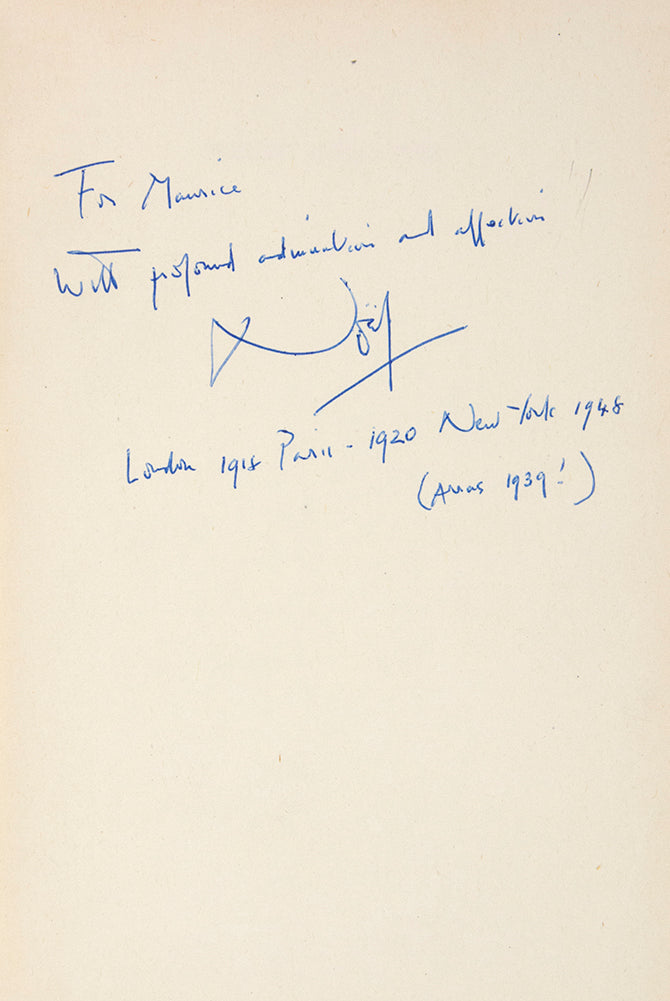 For Maurice
With profound admiration and affection
Noël
London 1918 Paris - 1920 New-York 1948
(Arras 1939!)